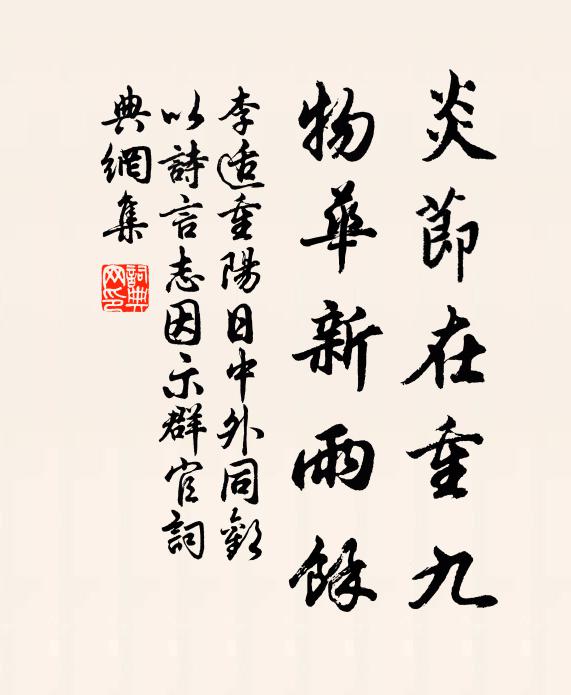 炎節在重九
物華新雨餘
李适重陽日中外同歡
以詩言志因示群官詞
典網集
詞典
网印